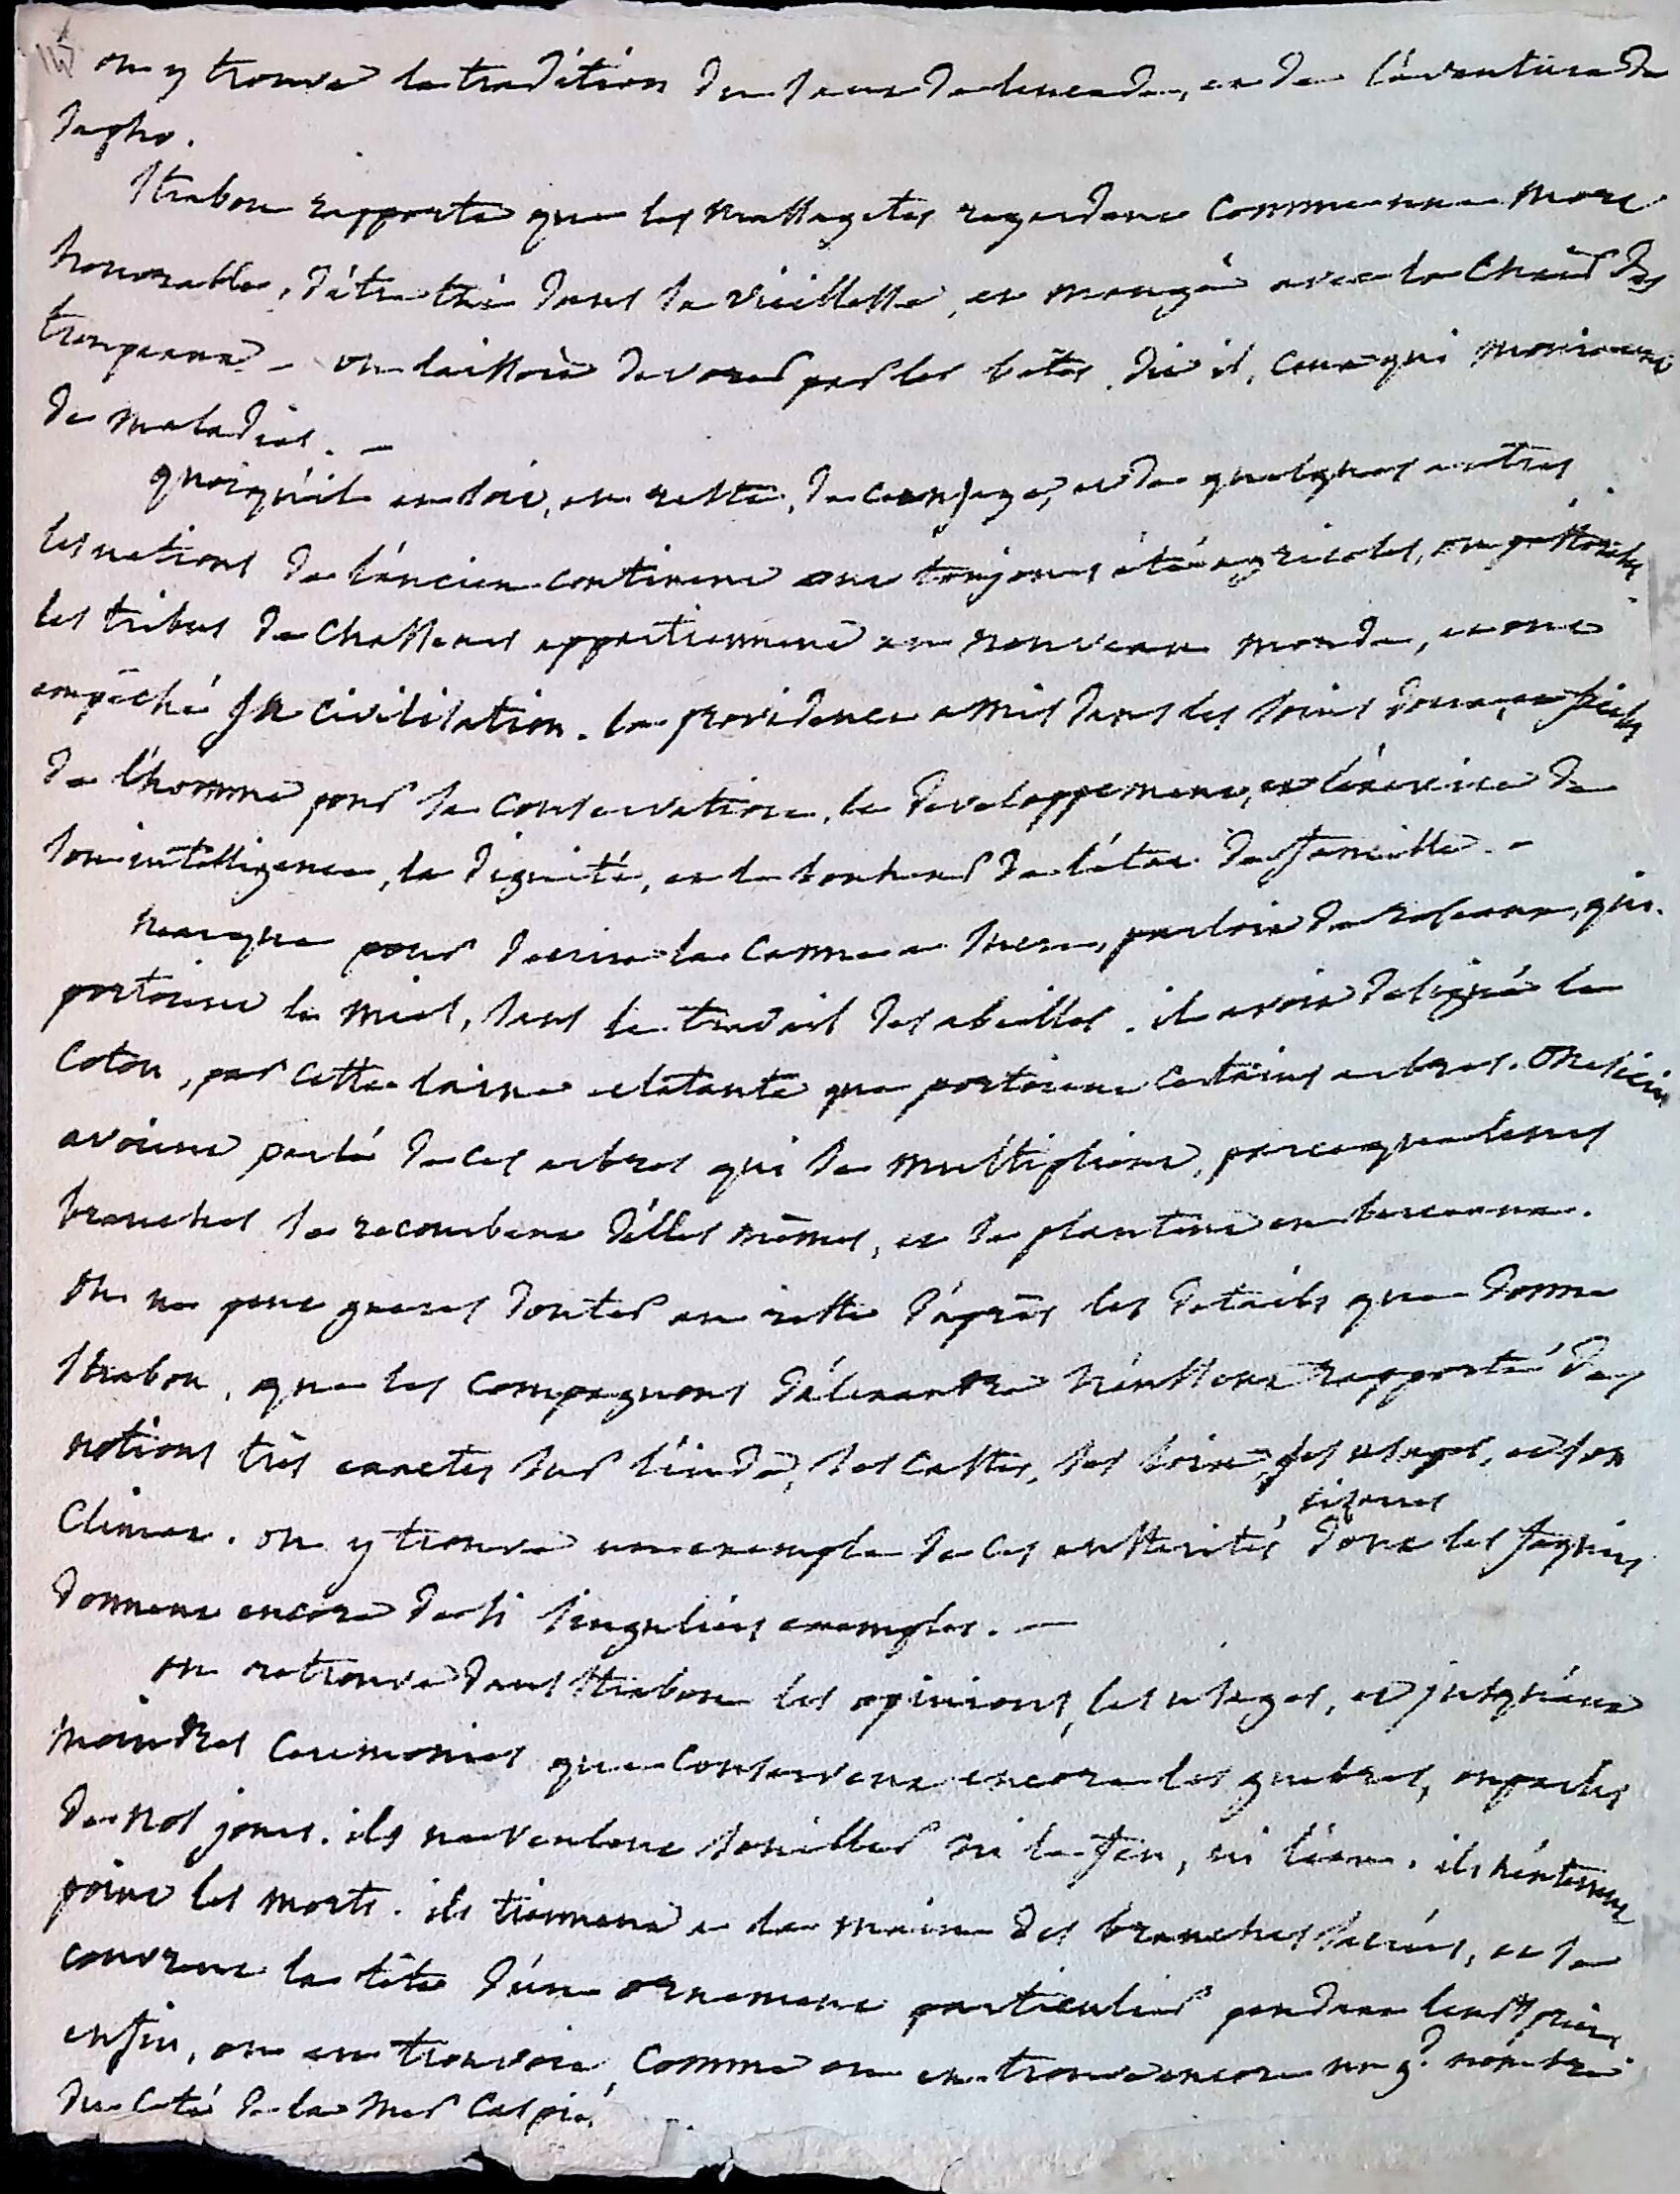 on y trouve la tradition du saut de leucade, et de l'aventure de
sapho.
Strabon rapporte que les massagetes regardent comme une mort
honorable, d'être tué dans sa vieillesse, et mangé avec la chair des
troupeaux - on laissoit devorer par les bêtes, dit il, ceux qui mouroient
de maladies. -
quoiqu'il en soit, au reste, de ces usages, et de quelques autres,
les nations de l'ancien continent ont toujours été agricoles, ou pastorales.
les tribus de chasseurs appartiennent au nouveau monde, et ont
empêché sa civilisation. la providence a mis dans les soins doux, et faciles
de l'homme pour sa conservation, le developpement, et l'exercice de
son intelligence, la dignité, et le bonheur de l'état de famille. -
nearque pour decrire la canne a sucre, parloit de roseaux, qui
portoient le miel, sans le travail des abeilles. il avoit designé le
coton, par cette laine eclatante que portoient certains arbres.
avoient parlé de ces arbres qui se multiplient, parceque leurs
branches se recourbent d'elles mêmes, et se plantent en berceaux.
on ne peut gueres douter au reste d'après les details que donne
Strabon, que les compagnons d'alexandre n'eussent rapporté des
notions très exactes sur l'inde, ses castes, ses loix, ses usages, et son
climat. on y trouve un exemple de ces austerités, bizarres dont les faquirs
donnent encore de si singuliers exemples. -
on retrouve dans Strabon les opinions, les usages, et jusqu'aux
moindres ceremonies que conservent encore les guebres, ou parsis
de nos jours. ils ne veulent souiller ni le feu, ni l'eau. ils n'enterrent
point les morts. ils tiennent a la main des branches sacrées, et se
couvrent la tête d'un ornement particulier pendant leurs prieres
enfin, on en trouvoit, comme on en trouve encore un gd nombre
du coté de la mer caspie